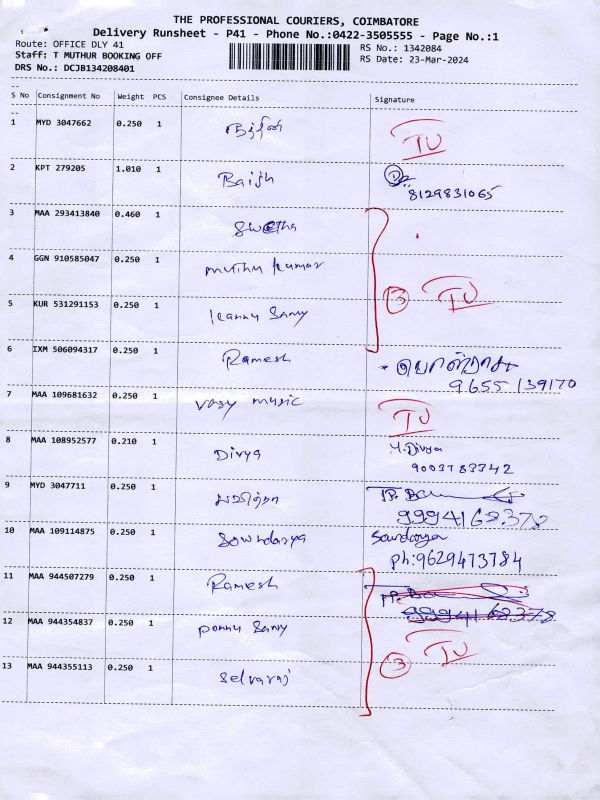 THE PROFESSIONAL COURIERS, COIMBATORE
Delivery Runsheet - P41 - Phone No.:0422-3505555 - Page No.:1
Route: OFFICE DLY 41
RS No.: 1342084
Staff: T MUTHUR BOOKING OFF
RS Date: 23-Mar-2024
DRS No.: DCJB134208401
S No Consignment No Weight PCS Consignee Details Signature
1 MYD 3047662 0.250 1 TU
2 KPT 279205 1.010 1 Baijh
8129831065
3 MAA 293413840 0.460 1 Swetha
4 GGN 910585047 0.250 1 muthu kumar
3 TU
5 KUR 531291153 0.250 1 kannu Samy
6 IXM 506094317 0.250 1 Ramesh
9655139170
7 MAA 109681632 0.250 1 vasy music TU
8 MAA 108952577 0.210 1 Divya Divya
9003783342
9 MYD 3047711 0.250 1
9994168378
10 MAA 109114875 0.250 1 Sowndarya Sowdarya
ph:9629473784
11 MAA 944507279 0.250 1 Ramesh
9994168378
12 MAA 944354837 0.250 1 ponnu Samy
3 TU
13 MAA 944355113 0.250 1 Selvaraj